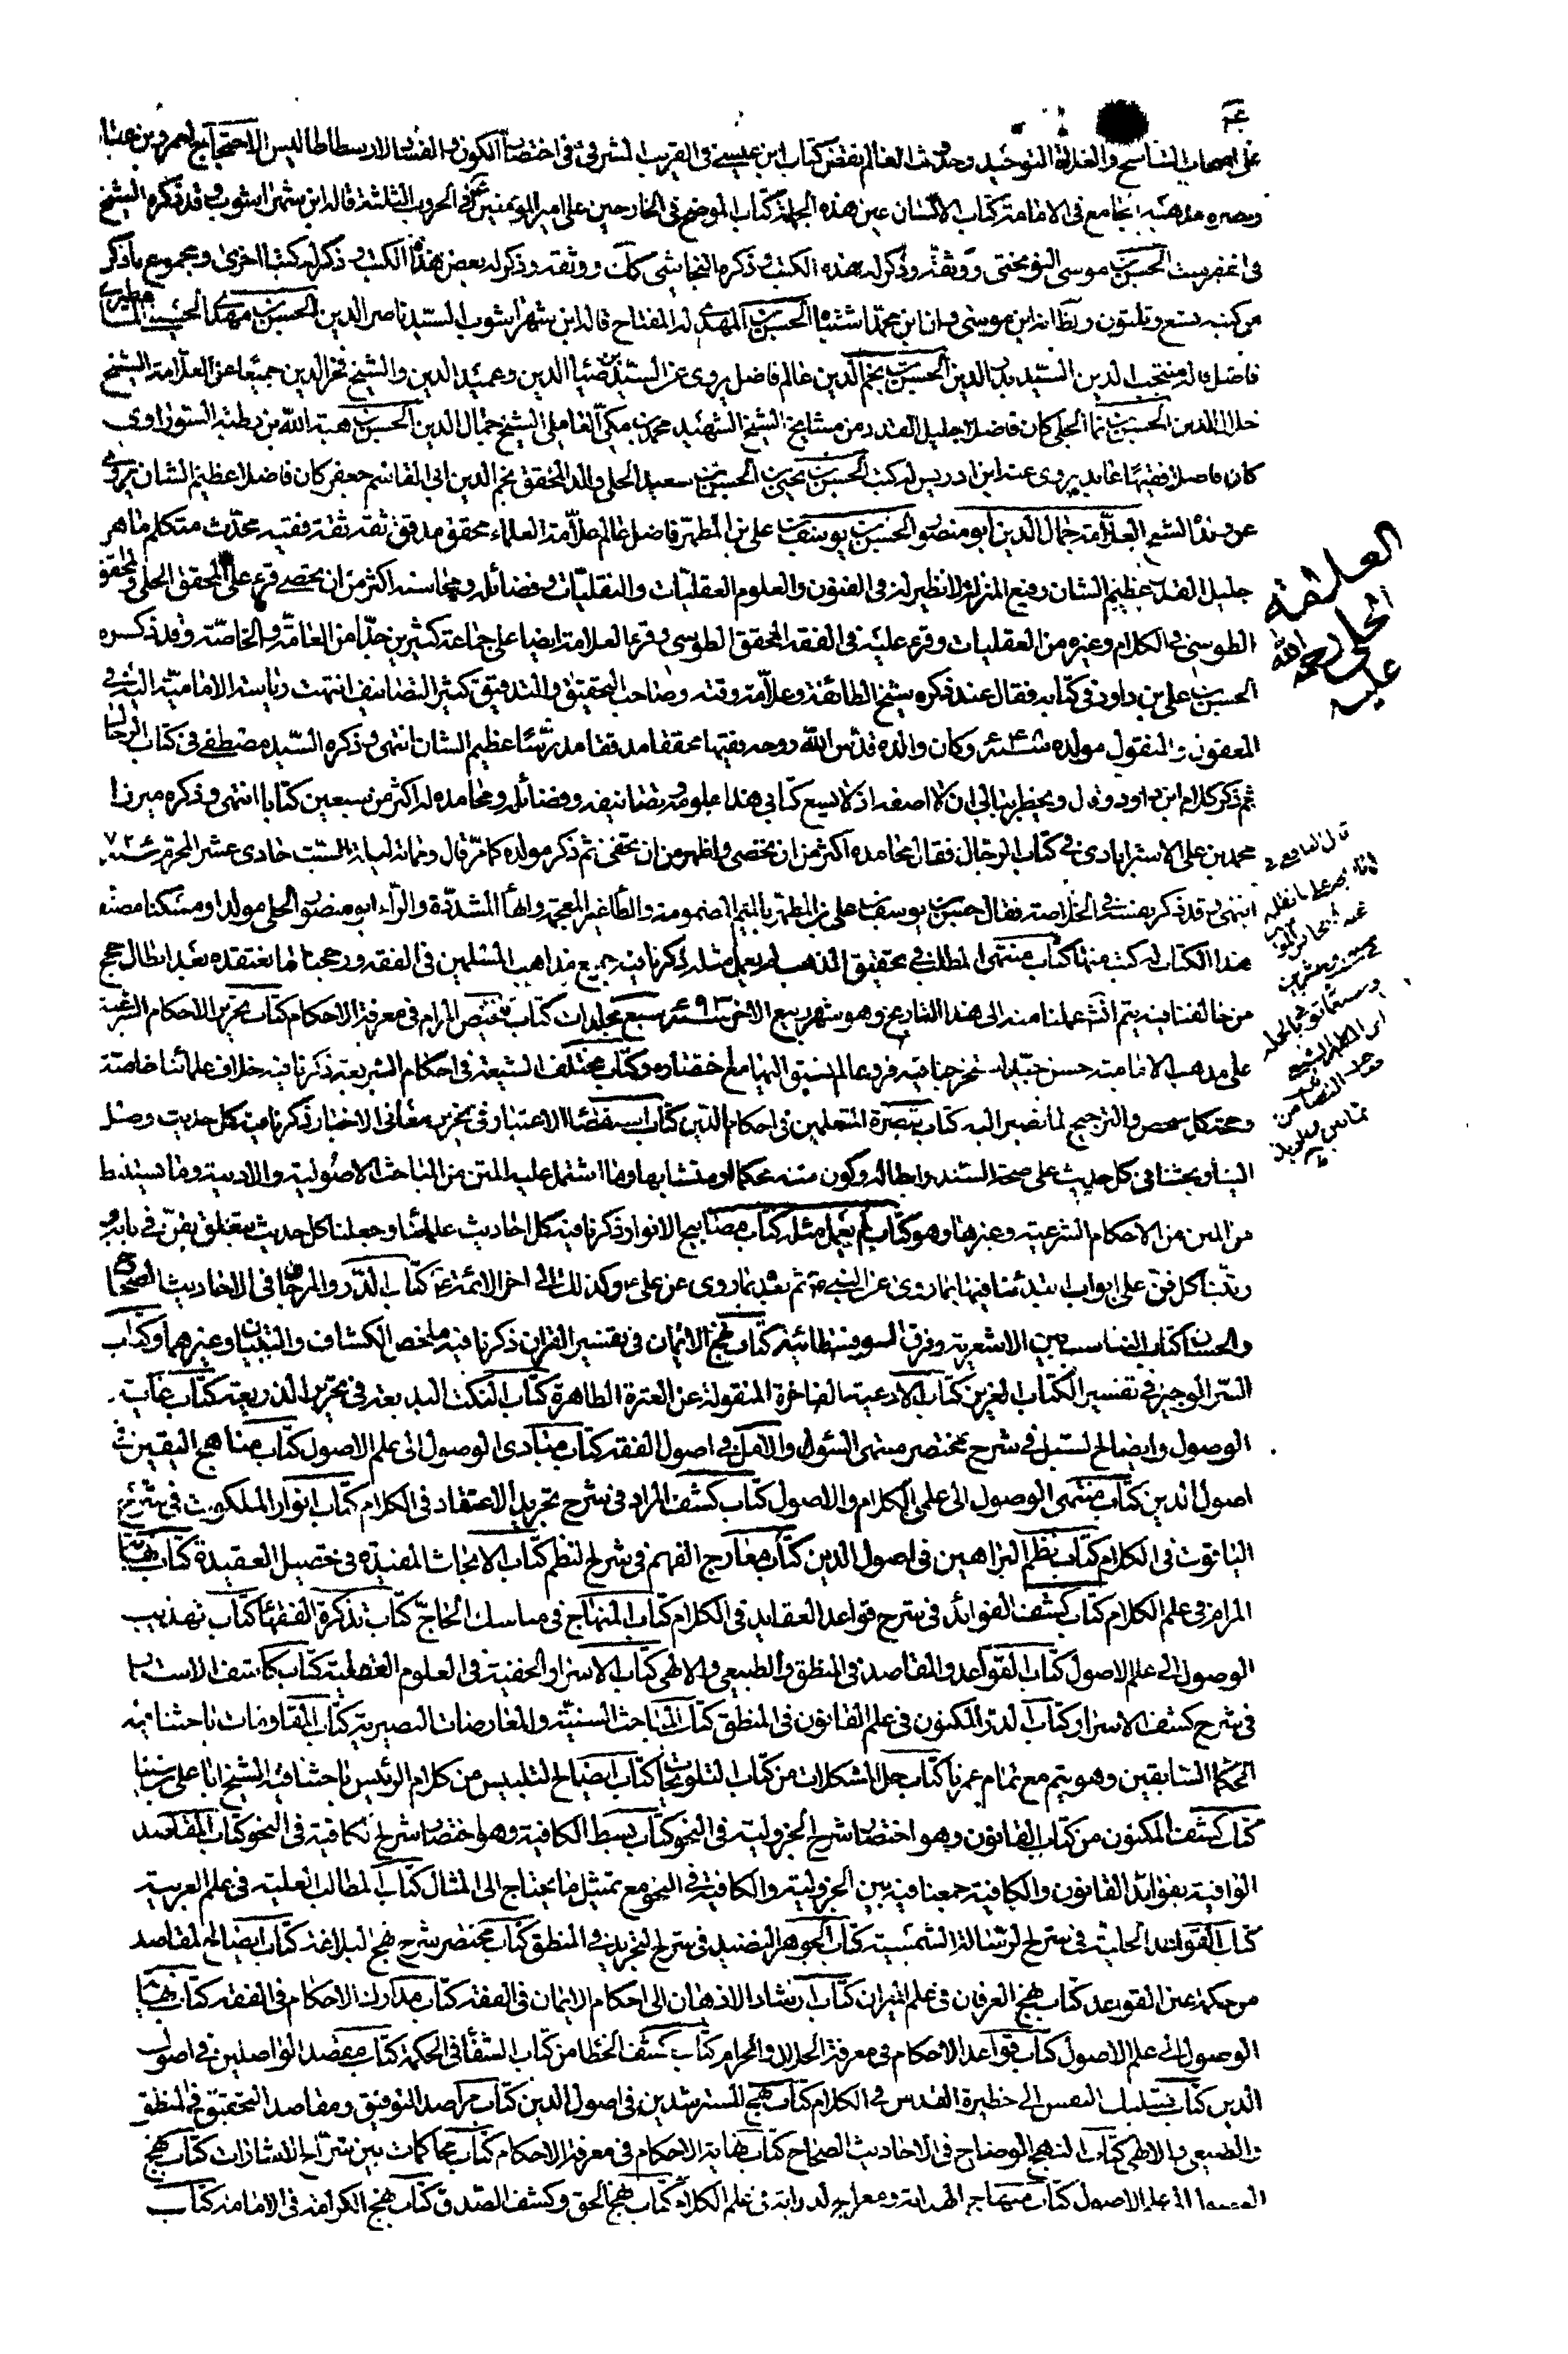 على اصحاب التناسخ والغلاة التوحيد وحدوث العالم نقض كتاب ابن عيسى في القريب المشرقي في اختصار الكون والفساد لارسطاطاليس الاحتجاج لعمرو بن عباد
ونصرة مذهبه الجامع في الامامة كتاب الانسان غير هذه الجملة كتاب الموضح في الخارجين على امير المؤمنين ع في الحروب الثلثة قاله ابن شهراشوب وقد ذكره الشيخ
في الفهرست الحسن بن موسى النوبختي ووثقه وذكر له هذه الكتب وذكره النجاشي كك ووثقه وذكر له بعض هذه الكتب وذكر له كتبا اخرى ومجموع ما ذكر
من كتبه تسع وثلثون ويظ انه ابن موسى وان ابن محمد اشتباه الحسن بن المهدي له المفتاح قاله ابن شهراشوب السيد ناصر الدين الحسن بن مهدي الحسيني المامطيري
فاضل قاله منتجب الدين السيد بدر الدين الحسن بن نجم الدين عالم فاضل يروي عن السيدين ضياء الدين وعميد الدين والشيخ فخر الدين جميعا عن العلامة الشيخ
جلال الدين الحسن بن نما الحلي كان فاضلا جليل القدر من مشايخ الشيخ الشهيد محمد بن مكي العاملي الشيخ جمال الدين الحسن بن هبة الله بن رطبة السوراوي
كان فاضلا فقيها عابدا يروي عنه ابن ادريس له كتب الحسن بن يحيى بن الحسن بن سعيد الحلي والد المحقق نجم الدين ابي القاسم جعفر كان فاضلا عظيم الشان يروي
عن ولده الشيخ العلامة جمال الدين ابو منصور الحسن بن يوسف بن علي بن المطهر فاضل عالم علامة العلماء محقق مدقق ثقة ثقة فقيه محدث متكلم ماهر
جليل القدر عظيم الشان رفيع المنزلة لا نظير له في الفنون والعلوم العقليات والنقليات وفضائله ومحاسنه اكثر من ان تحصى قرء على المحقق الحلي والمحقق
الطوسي في الكلام وغيره من العقليات وقرء عليه في الفقه المحقق الطوسي وقرء العلامة ايضا على جماعة كثيرين جدا من العامة والخاصة وقد ذكره
الحسن بن علي بن داود في كتابه فقال عند ذكره شيخ الطائفة وعلامة وقته وصاحب التحقيق والتدقيق كثير التصانيف انتهت رياسة الامامية اليه في
المعقول والمنقول مولده سنة وكان والده قدس الله روحه فقيها محققا مدرسا عظيم الشان انتهى وذكره السيد مصطفى في كتاب الرجال
ثم ذكر كلام ابن داود وقال ويخطر ببالي ان لا اصفه اذ لا يسع كتابي هذا علومه وتصانيفه وفضائله ومحامده له اكثر من سبعين كتابا انتهى وذكره ميرزا
محمد بن علي الاسترابادي في كتاب الرجال فقال محامده اكثر من ان تحصى واظهر من ان تخفى ثم ذكر مولده كما مر قال ومات ليلة السبت حادي عشر المحرم سنة ٧٢٦
انتهى وقد ذكر نفسه في الخلاصة فقال حسن بن يوسف بن علي بن المطهر بالميم المضمومة والطاء غير المعجمة والهاء المشددة والراء ابو منصور الحلي مولدا ومسكنا مصنف
هذا الكتاب له كتب منها كتاب منتهى المطلب في تحقيق المذهب لم يعمل مثله ذكرنا فيه جميع مذاهب المسلمين في الفقه ورجحنا ما نعتقده بعد ابطال حجج
من خالفنا فيه يتم انش عملنا منه الى هذا التاريخ وهو شهر ربيع الاخر سنة ٦٩٣ سبع مجلدات كتاب تلخيص المرام في معرفة الاحكام كتاب تحرير الاحكام الشرعية
على مذهب الامامية حسن جيد استخرجنا فيه فروعا لم نسبق اليها مع اختصاره وكتاب مختلف الشيعة في احكام الشريعة ذكرنا فيه خلاف علمائنا خاصة
وحجة كل شخص والترجيح لما نصير اليه كتاب تبصرة المتعلمين في احكام الدين كتاب استقصاء الاعتبار في تحرير معاني الاخبار ذكرنا فيه كل حديث وصل
الينا وبحثنا في كل حديث على صحة السند وابطاله وكون متنه محكما او متشابها وما اشتمل عليه المتن من المباحث الاصولية والادبية وما يستنبط
من المتن من الاحكام الشرعية وغيرها وهو كتاب لم يعمل مثله كتاب مصابيح الانوار ذكرنا فيه كل احاديث علمائنا وجعلنا كل حديث يتعلق بفن في بابه
ورتبنا كل فن على ابواب ابتدئنا فيها بما روي عن النبي ص ثم بعد بما روي عن علي ع وكذلك الى اخر الائمة ع كتاب الدر والمرجان في الاحاديث الصحاح
والحسان كتاب التناسب بين الاشعرية وفرق السوفسطائية كتاب نهج الايمان في تفسير القران ذكرنا فيه ملخص الكشاف والتبيان وغيرهما وكتاب
السر الوجيز في تفسير الكتاب العزيز كتاب الادعية الفاخرة المنقولة عن العترة الطاهرة كتاب النكت البديعة في تحرير الذريعة كتاب غاية
الوصول وايضاح السبل في شرح مختصر منتهى السؤل والامل في اصول الفقه كتاب مبادي الوصول الى علم الاصول كتاب مناهج اليقين في
اصول الدين كتاب منتهى الوصول الى علمي الكلام والاصول كتاب كشف المراد في شرح تجريد الاعتقاد في الكلام كتاب انوار الملكوت في شرح
الياقوت في الكلام كتاب نظم البراهين في اصول الدين كتاب معارج الفهم في شرح النظم كتاب الابحاث المفيدة في تحصيل العقيدة كتاب نهاية
المرام في علم الكلام كتاب كشف الفوائد في شرح قواعد العقايد في الكلام كتاب المنهاج في مناسك الحاج كتاب تذكرة الفقهاء كتاب تهذيب
الوصول الى علم الاصول كتاب القواعد والمقاصد في المنطق والطبيعي والالهي كتاب الاسرار الخفية في العلوم العقلية كتاب كاشف الاستار
في شرح كشف الاسرار كتاب الدر المكنون في علم القانون في المنطق كتاب المباحث السنية والمعارضات النصيرية كتاب المقاومات باحثنا فيه
الحكماء السابقين وهو يتم مع تمام عمرنا كتاب حل المشكلات من كتاب التلويحات كتاب ايضاح التلبيس من كلام الرئيس باحثنا فيه الشيخ ابا علي بن سينا
كتاب كشف المكنون من كتاب القانون وهو اختصار شرح الجزولية في النحو كتاب بسط الكافية وهو اختصار شرح الكافية في النحو كتاب المقاصد
الوافية بفوائد القانون والكافية جمعنا فيه بين الجزولية والكافية في النحو مع تمثيل ما يحتاج الى المثال كتاب المطالب العلية في علم العربية
كتاب القواعد الجلية في شرح الرسالة الشمسية كتاب الجوهر النضيد في شرح التجريد في المنطق كتاب مختصر شرح نهج البلاغة كتاب ايضاح المقاصد
من حكمة عين القواعد كتاب نهج العرفان في علم الميزان كتاب ارشاد الاذهان الى احكام الايمان في الفقه كتاب مدارك الاحكام في الفقه كتاب نهاية
الوصول الى علم الاصول كتاب قواعد الاحكام في معرفة الحلال والحرام كتاب كشف الخفا من كتاب الشفا في الحكمة كتاب مقصد الواصلين في اصول
الدين كتاب تسليك النفس الى حظيرة القدس في الكلام كتاب نهج المسترشدين في اصول الدين كتاب مراصد التوفيق ومقاصد التحقيق في المنطق
والطبيعي والالهي كتاب النهج الوضاح في الاحاديث الصحاح كتاب نهاية الاحكام في معرفة الاحكام كتاب محاكمات بين شراح الاشارات كتاب نهج
الوصول الى علم الاصول كتاب منهاج الهداية ومعراج الدراية في علم الكلام كتاب نهج الحق وكشف الصدق كتاب نهج الكرامة في الامامة كتاب
العلامة
الحلي رحمة الله
عليه